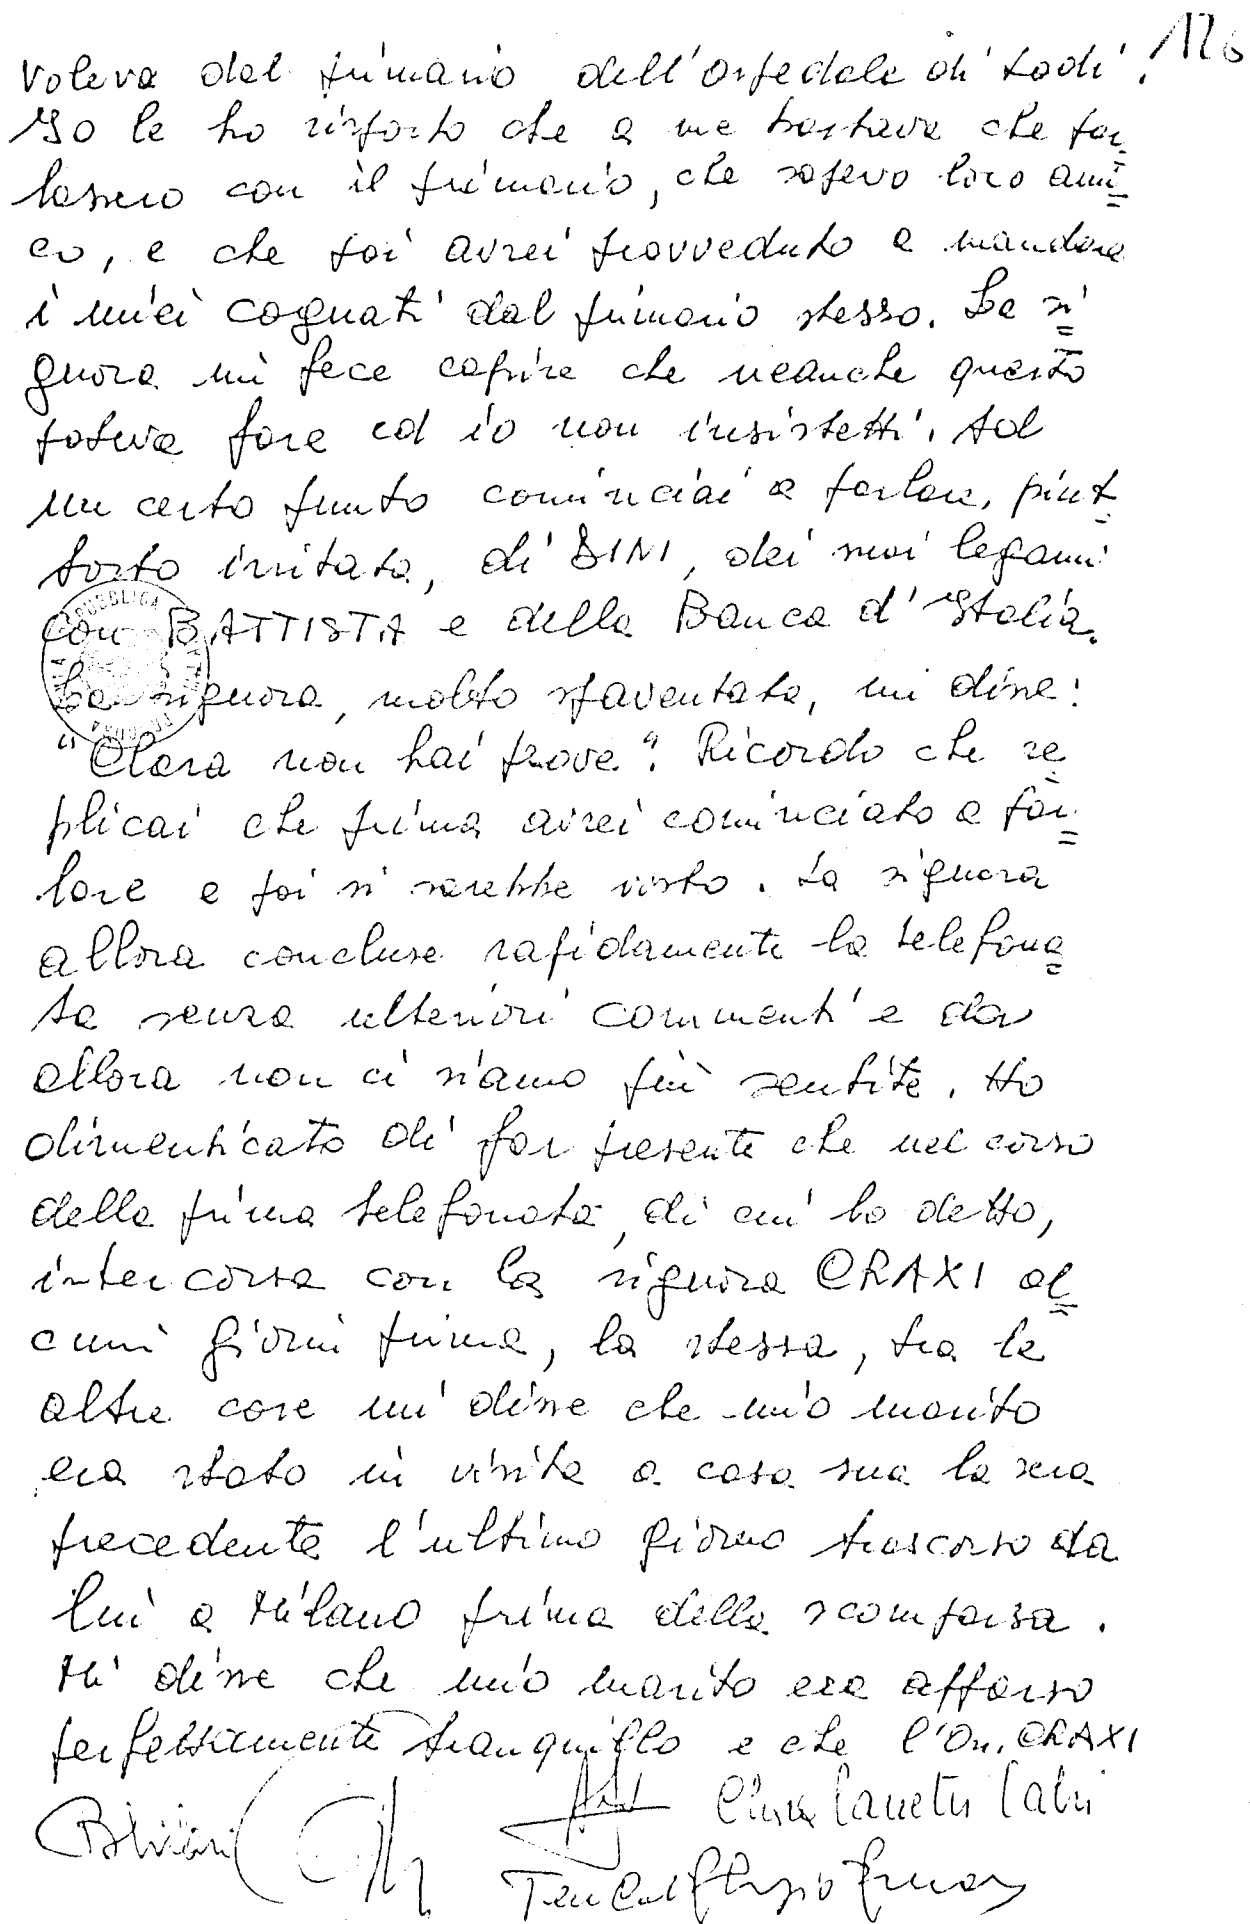 126
voleva dal primario dell'ospedale di Lodi.
Io le ho risposto che a me bastava che par=
lassero con il primario, che sapevo loro ami=
co, e che poi avrei provveduto a mandare
i miei cognati dal primario stesso. La si=
gnora mi fece capire che neanche questo
poteva fare ed io non insistetti. Ad
un certo punto cominciai a parlare, piut=
tosto irritata, di DINI, dei suoi legami
con BATTISTA e della Banca d'Italia.
La signora, molto spaventata, mi disse:
"Clara non hai prove". Ricordo che re=
plicai che prima avrei cominciato a par=
lare e poi si sarebbe visto. La signora
allora concluse rapidamente la telefona=
ta senza ulteriori commenti e da
allora non ci siamo più sentite. Ho
dimenticato di far presente che nel corso
della prima telefonata, di cui ho detto,
intercorsa con la signora CRAXI al=
cuni giorni prima, la stessa, tra le
altre cose mi disse che mio marito
era stato in visita a casa sua la sera
precedente l'ultimo giorno trascorso da
lui a Milano prima della scomparsa.
Mi disse che mio marito era apparso
perfettamente tranquillo e che l'On. CRAXI
Clara Canetti Calvi
Ten Col